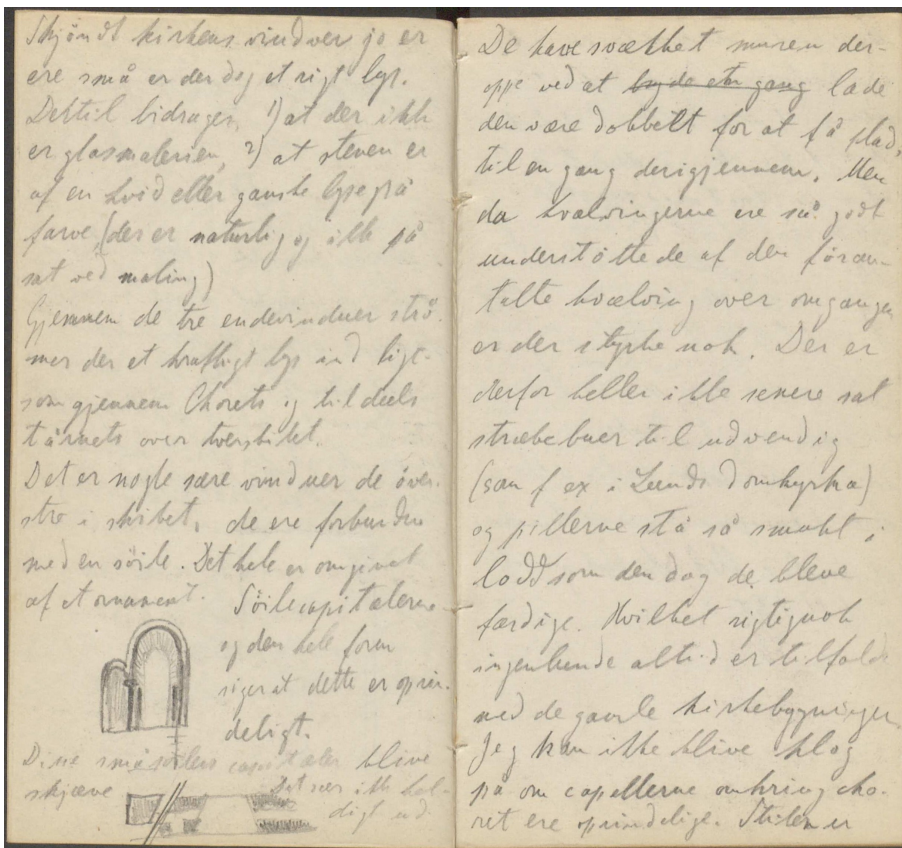 Skjöndt kirkens vinduer jo er
ere små er der dog et rigt lys.
Dertil bidrager, 1) at der ikke
er glasmalerier, 2) at stenen er
af en hvid eller ganske lysegrå
farve, (der er naturlig og ikke på
sat ved maling)
Gjennem de tre endevinduer strö-
mer der et kraftigt lys ind ligt-
som gjennem Chorets og til deels
tårnets over tverskibet.
Det er nogle sære vinduer de över-
ste i skibet, de ere forbundne
med en söile. Det hele er omgivet
af et ornament. Söilecapitælerne
og den hele form
siger at dette er oprin-
deligt.
Disse småsöilers capitæler blive
skjæve Det ser ikke hel-
digt ud.
De have svækket muren der-
oppe ved at byde en gang lade
den være dobbelt for at få plads
til en gang derigjennem. Men
da hvælvingerne ere så godt
understöttede af den foran-
talte hvælving over omgangen
er der styrke nok. Der er
derfor heller ikke senere sat
stræbebuer til udvendig
(som f ex i Lunds Domkyrka)
og pillerne stå så smukt i
lodd som den dag de bleve
færdige. Hvilket rigtignok
ingenlunde altid er tilfælde
med de gamle kirkebygninger.
Jeg kan ikke blive klog
på om capellerne omkring cho-
ret ere oprindelige. Stilen er